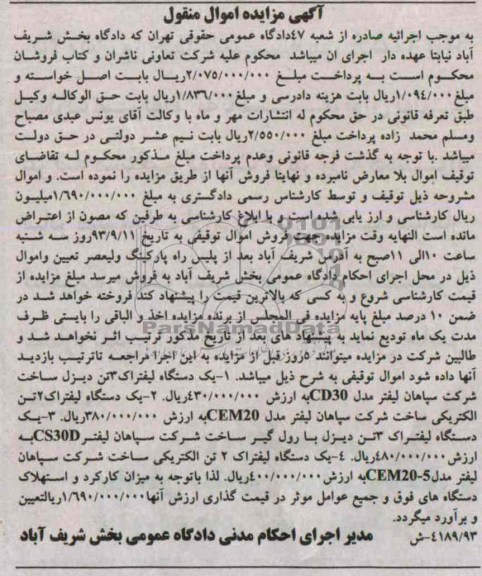 آگهی مزایده اموال منقول
به موجب اجرائیه صادره از شعبه ۴۷دادگاه عمومی حقوقی تهران که دادگاه بخش شریف
آباد نیابتا عهده دار  اجرای ان میباشد  محکوم علیه شرکت تعاونی ناشران و کتاب فروشان
محکوم است به پرداخت مبلغ ۲/۰۷۵/۰۰۰/۰۰۰ریال بابت اصل خواسته و
مبلغ۱/۰۹۴/۰۰۰ریال بابت هزینه دادرسی و مبلغ۱/۸۳۶/۰۰۰ریال بابت حق الوکاله وکیل
طبق تعرفه قانونی در حق محکوم له انتشارات مهر و ماه با وکالت آقای یونس عیدی مصباح
ومسلم محمد  زاده پرداخت مبلغ ۲/۵۵۰/۰۰۰ریال بابت نیم عشر دولتی در حق دولت
میباشد .با توجه به گذشت فرجه قانونی وعدم پرداخت مبلغ مذکور محکوم له تقاضای
توقیف اموال بلا معارض نامبرده و نهایتا فروش آنها از طریق مزایده را نموده است. و اموال
مشروحه ذیل توقیف و توسط کارشناس رسمی دادگستری به مبلغ ۱/۶۹۰/۰۰۰/۰۰۰میلیون
ریال کارشناسی و ارز یابی شده است و با ابلاغ کارشناسی به طرفین که مصون از اعتراض
مانده است النهایه وقت مزایده جهت فروش اموال توقیفی به تاریخ ۹۳/۹/۱۱روز سه شنبه
ساعت ۱۰الی ۱۱صبح به آدرس شریف آباد بعد از پلیس راه پارکینگ ولیعصر تعیین واموال
ذیل در محل اجرای احکام دادگاه عمومی بخش شریف آباد به فروش میرسد مبلغ مزایده از
قیمت کارشناسی شروع و به کسی که بالاترین قیمت را پیشنهاد کند فروخته خواهد شد در
ضمن ۱۰ درصد مبلغ پایه مزایده فی المجلس از برنده مزایده اخذ و الباقی را بایستی ظرف
مدت یک ماه تودیع نماید به پیشنهاد های بعد از تاریخ مذکور ترتیب اثر نخواهد شد و
طالبین شرکت در مزایده میتوانند ۵روز قبل از مزایده به این اجرا مراجعه تاترتیب بازدید
آنها داده شود اموال توقیفی به شرح ذیل میباشد. ۱-یک دستگاه لیفتراک۳تن دیزل ساخت
شرکت سپاهان لیفتر مدل CD30به ارزش ۴۳۰/۰۰۰/۰۰۰ریال. ۲-یک دستگاه لیفتراک۲تن
الکتریکی ساخت شرکت سپاهان لیفتر مدل CEM20به ارزش ۳۸۰/۰۰۰/۰۰۰ریال. ۳-یک
دستگاه لیفتراک ۳تن دیزل با رول گیر ساخت شرکت سپاهان لیفترCS30Dبه
ارزش۴۸۰/۰۰۰/۰۰۰ریال. ۴-یک دستگاه لیفتراک ۲ تن الکتریکی ساخت شرکت سپاهان
لیفتر مدلCEM20-5به ارزش۴۰۰/۰۰۰/۰۰۰ریال. لذا باتوجه به میزان کارکرد و استهلاک
دستگاه های فوق و جمیع عوامل موثر در قیمت گذاری ارزش آنها۱/۶۹۰/۰۰۰/۰۰۰ریالتعیین
و برآورد میگردد.
۴۱۸۹/۹۳-ش  مدیر اجرای احکام مدنی دادگاه عمومی بخش شریف آباد
ParsNamadData